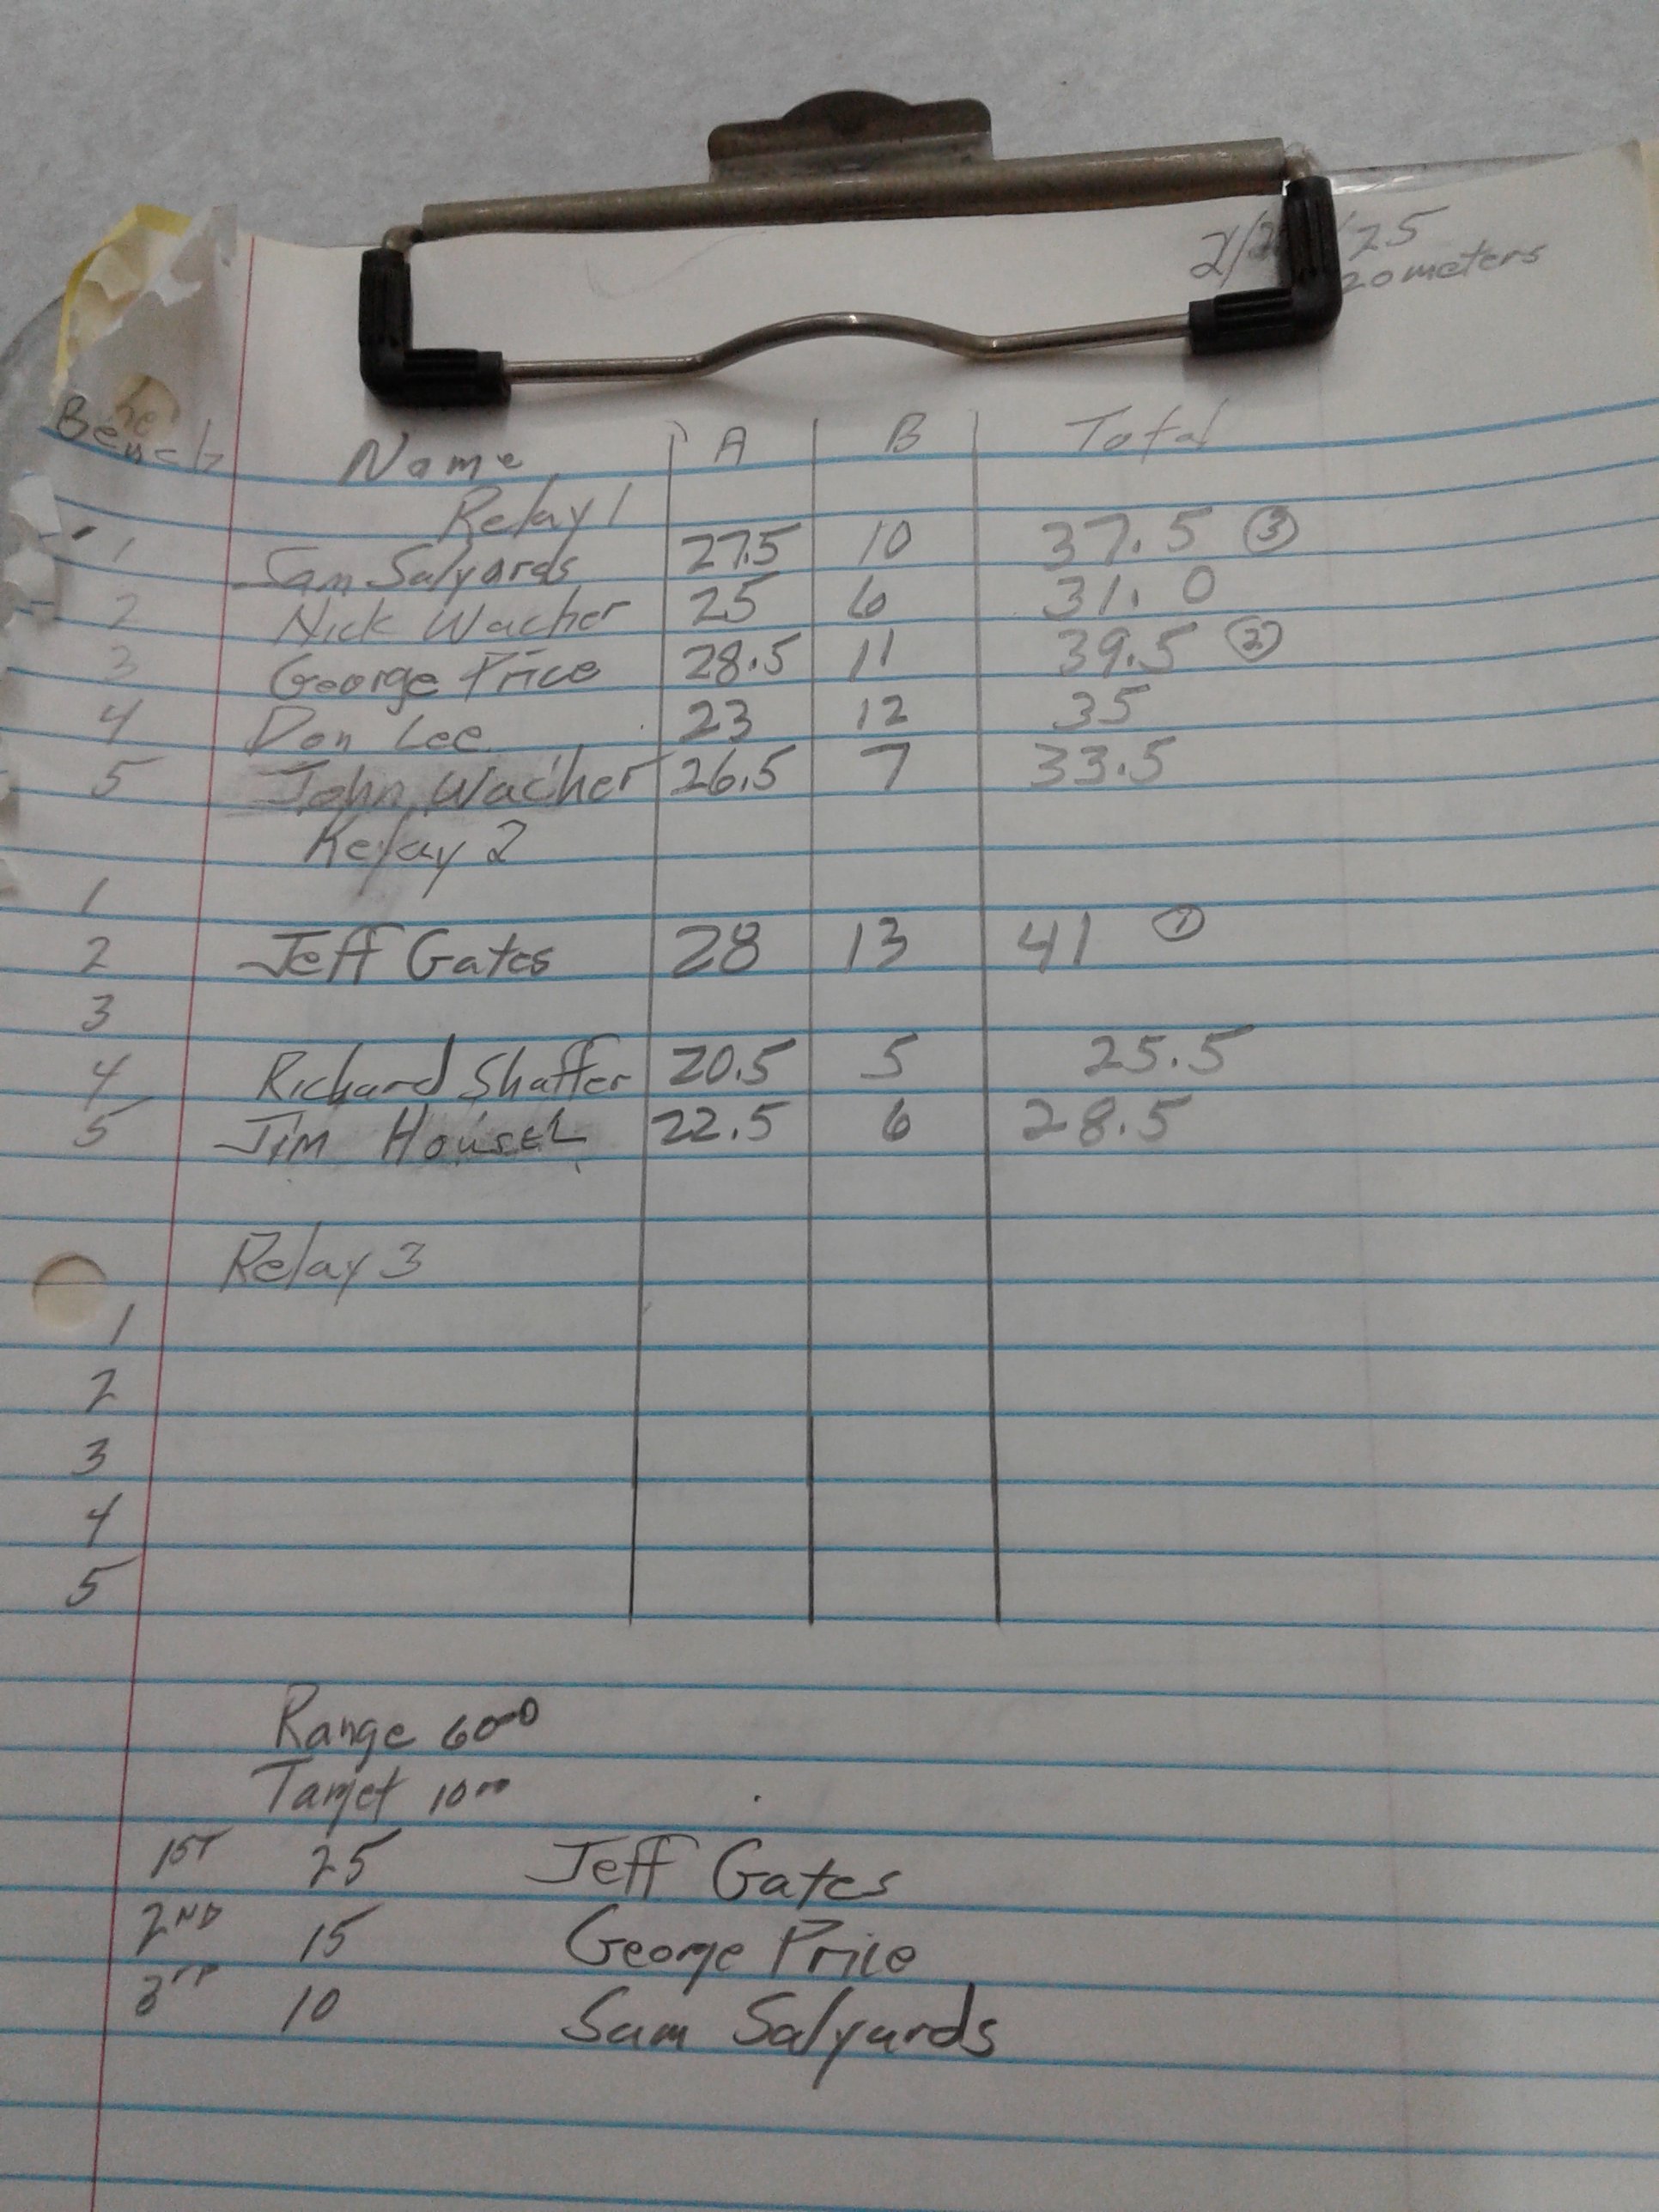 '25
20 meters
Bench Name A B Total
Relay 1
1 Sam Salyards 27.5 10 37.5 ③
2 Nick Wacher 25 6 31.0
3 George Price 28.5 11 39.5 ②
4 Don Lee 23 12 35
5 John Wacher 26.5 7 33.5
Relay 2
1
2 Jeff Gates 28 13 41 ①
3
4 Richard Shaffer 20.5 5 25.5
5 Jim Housel 22.5 6 28.5
Relay 3
1
2
3
4
5
Range 6⁰⁰
Target 10⁰⁰
1ST 25 Jeff Gates
2ND 15 George Price
3rd 10 Sam Salyards